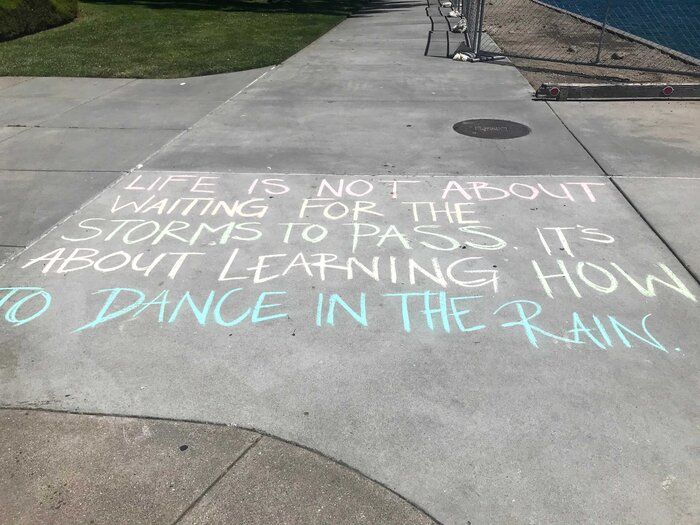 LIFE IS NOT ABOUT
WAITING FOR THE
STORMS TO PASS. IT'S
ABOUT LEARNING HOW
TO DANCE IN THE RAIN.